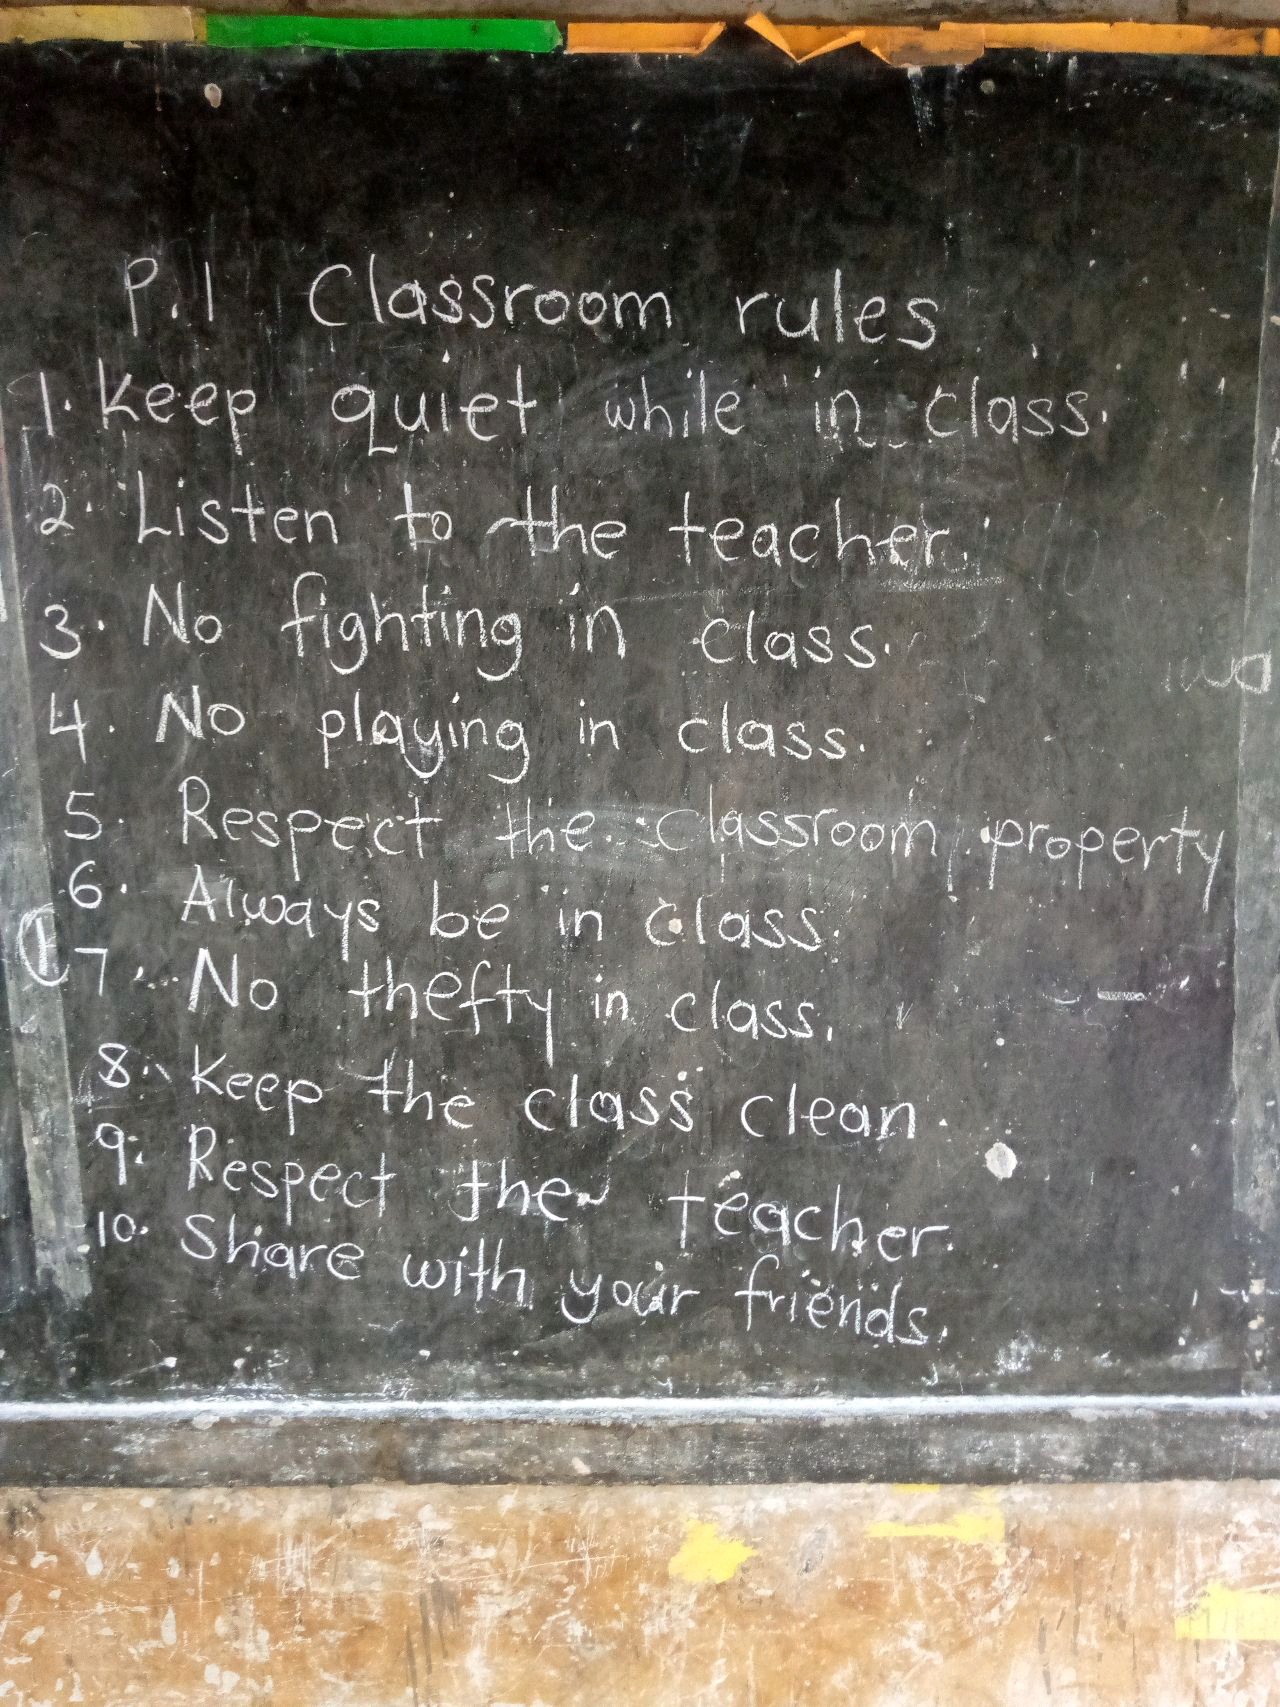 P.1 Classroom rules
1. Keep quiet while in class.
2. Listen to the teacher.
3. No fighting in class.
4. No playing in class.
5. Respect the classroom property
6. Always be in class.
7. No thefty in class.
8. Keep the class clean.
9. Respect the teacher.
10. Share with your friends.